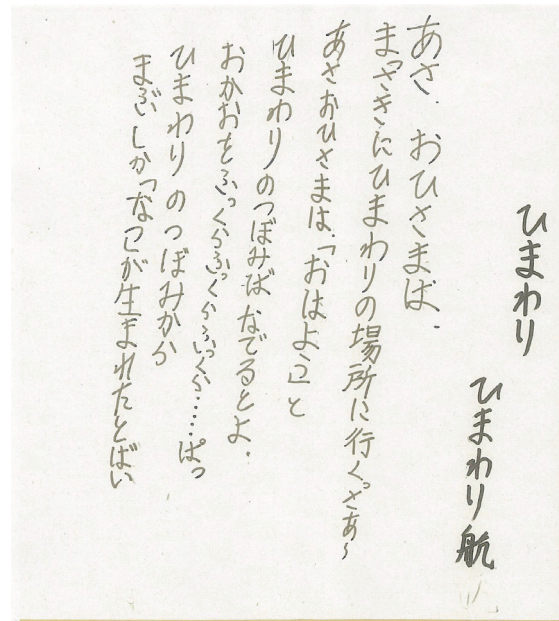 ひまわり
ひまわり航
あさ、おひさまは、
まっさきにひまわりの場所に行くさぁ〜
あさおひさまは、「おはよう」と
ひまわりのつぼみば なでるとよ。
おかおをふっくらふっくらふっくら……ぱっ
ひまわりのつぼみから
まぶしか「なつ」が生まれたとばい